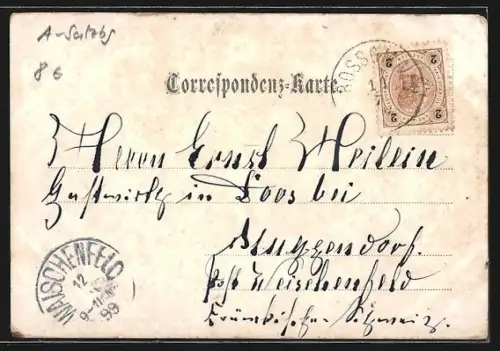 A-Salzbg
8 €
Correspondenz-Karte
GOSSA
2 2
2 2
Herrn Ernst Heilein
Gastwirth in Doos bei
Muggendorf.
Post Weischenfeld
Fränkische Schweiz.
WAISCHENFELD
12
9-10
99